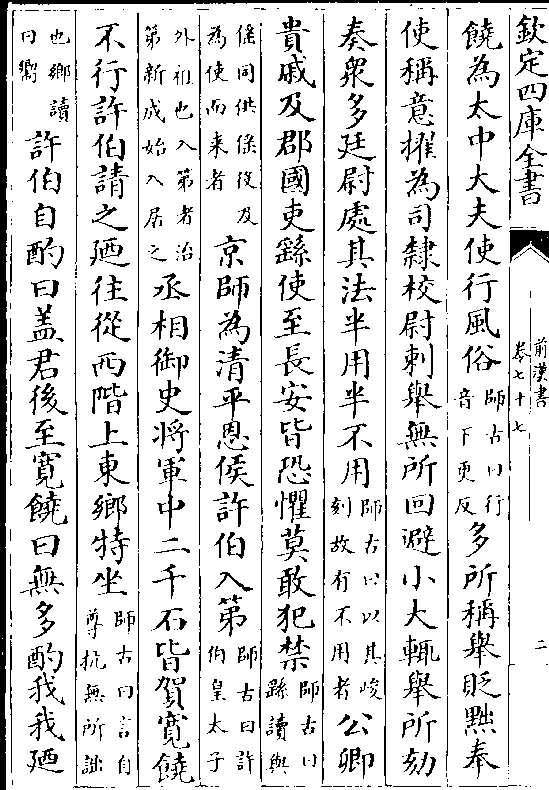 欽定四庫全書
前漢書
卷七十七
二
饒為太中大夫使行風俗師古曰行音下更反多所稱舉貶黜奉
使稱意擢為司隸校尉刺舉無所回避小大輒舉所劾
奏衆多廷尉處其法半用半不用師古曰以其峻刻故有不用者公卿
貴戚及郡國吏繇使至長安皆恐懼莫敢犯禁師古曰繇讀與
徭同供徭役及為使而來者京師為清平恩侯許伯入第師古曰許伯皇太子
外祖也入第者治第新成始入居之丞相御史將軍中二千石皆賀寛饒
不行許伯請之廼往從西階上東鄉特坐師古曰言自尊抗無所詘
也鄉讀曰嚮許伯自酌曰盖君後至寛饒曰無多酌我我廼